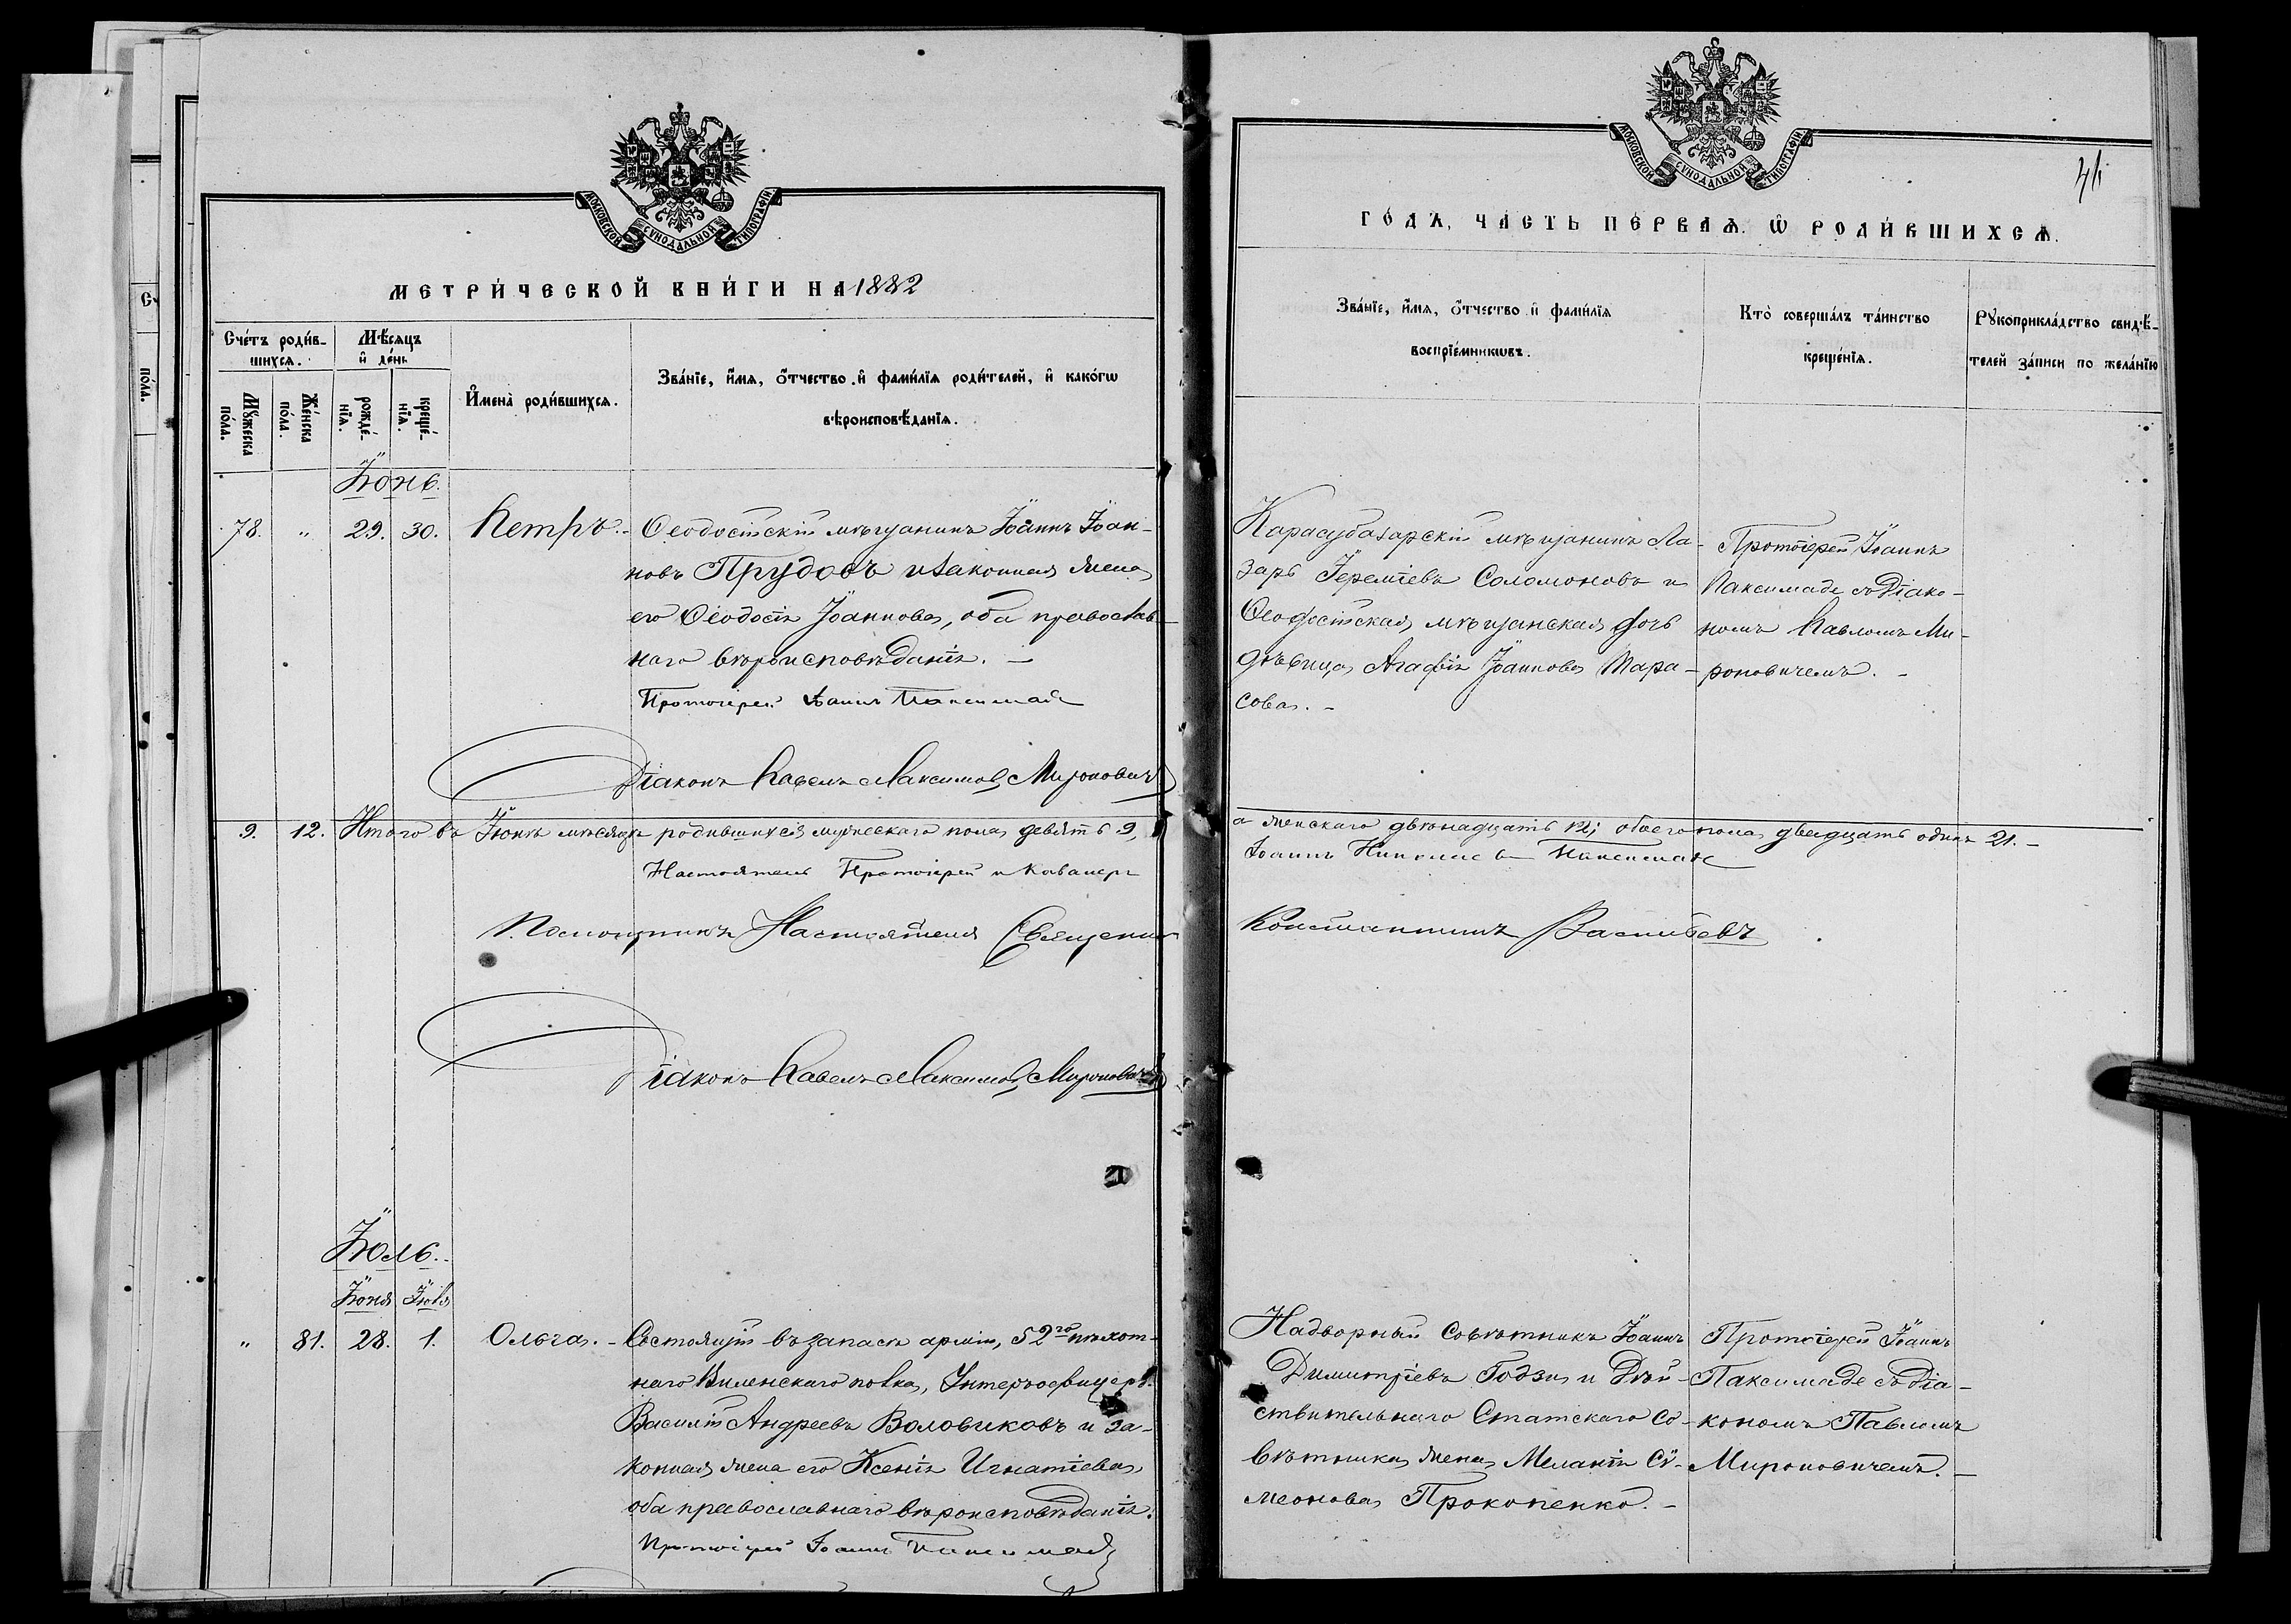 МОСКОВСКОЙ СѴНОДАЛЬНОЙ ТИПОГРАФІИ
МЕТРИ́ЧЕСКОЙ КНИ́ГИ НА 1882
Сче́тъ роди́в-
шихся.
Мѣ́сяцъ
и҆ де́нь
Мꙋ́жеска
по́ла.
Же́нска
по́ла.
рожде́-
нїя.
креще́-
нїя.
И҆мена̀ роди́вшихся.
Зва́нїе, и҆́мя, ѻ҆́тчество и҆ фами́лїя роди́телей, и҆ како́гѡ
вѣроисповѣ́данїя.
Іюнь.
78. " 29. 30. Петръ. Ѳеодосійскій мѣщанинъ Іоаннъ Іоан-
новъ Прудовъ и законная жена
его Ѳеодосія Іоаннова, оба православ-
наго вѣроисповѣданія. -
Протоіерей Іоаннъ Паксимаде
Діаконъ Павелъ Максимов. Мироновичъ
9. 12. Итого въ Іюнѣ мѣсяцѣ родившихся мужескаго пола девять 9,
Настоятель Протоіерей и Кавалеръ
Помощникъ Настоятеля Священникъ
Діаконъ Павелъ Максимов. Мироновичъ
Іюль.
Іюня Іюля
" 81. 28. 1. Ольга. - Состоящій въ запасѣ арміи, 52го пѣхот-
наго Виленскаго полка, Унтеръ-офицеръ
Василій Андреевъ Воловиковъ и за-
конная жена его Ксенія Игнатіева,
оба православнаго вѣроисповѣданія.
Протоіерей Іоаннъ Паксимаде
МОСКОВСКОЙ СѴНОДАЛЬНОЙ ТИПОГРАФІИ
ГО́ДЪ, ЧА́СТЬ ПЕ́РВАѦ, Ѡ҆ РОДИ́ВШИХСѦ.
Зва́нїе, и҆́мя, ѻ҆́тчество и҆ фами́лїя
воспрїе́мникѡвъ.
Кто̀ соверша́лъ та́инство
креще́нїя.
Рꙋкоприкла́дство свидѣ́-
телей за́писи по жела́нїю
Карасубазарскій мѣщанинъ Ла-
зарь Іереміевъ Соломоновъ и
Ѳеодосійская мѣщанская дочь
дѣвица Агафія Іоаннова Тара-
сова. -
Протоіерей Іоаннъ
Паксимаде съ Діако-
номъ Павломъ Ми-
роновичемъ. -
а женскаго двѣнадцать 12, обоего пола двадцать одинъ 21. -
Іоаннъ Николаевъ Паксимаде
Константинъ Васильевъ
Надворный Совѣтникъ Іоаннъ
Димитріевъ Годзи и Дѣй-
ствительнаго Статскаго Со-
вѣтника жена Меланія Сѵ-
меонова Прокопенко. -
Протоіерей Іоаннъ
Паксимаде съ Діа-
кономъ Павломъ
Мироновичемъ. -